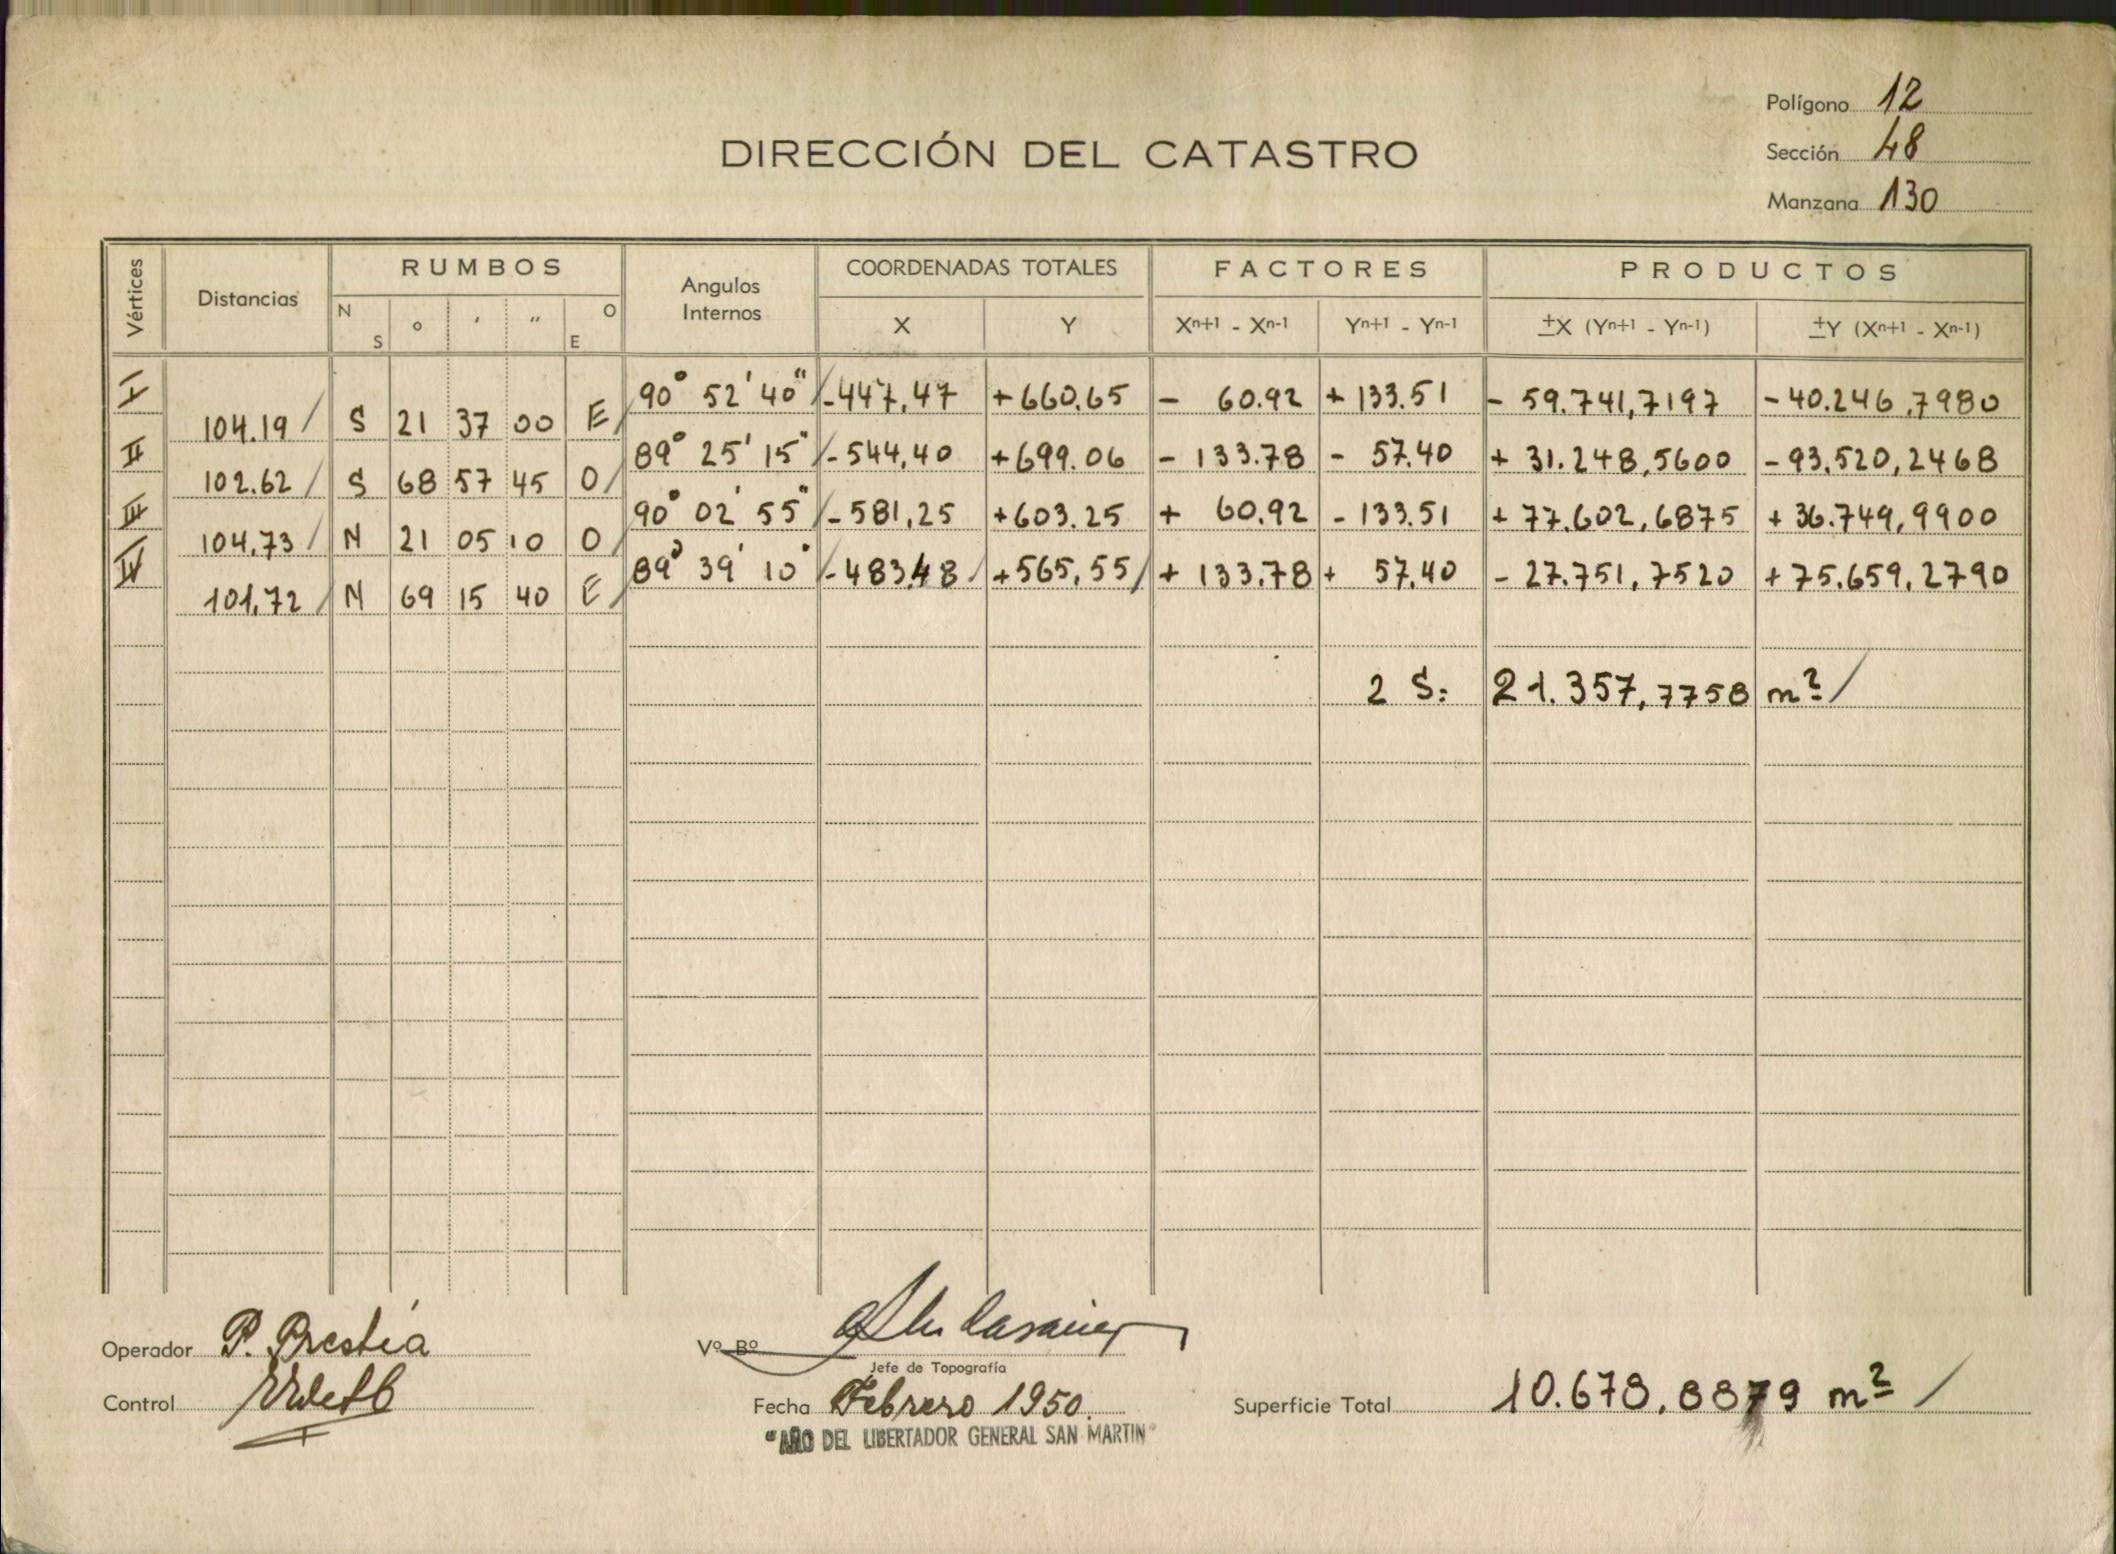 Polígono 12
DIRECCIÓN DEL CATASTRO
Sección 48
Manzana 130
Vértices Distancias RUMBOS Angulos Internos COORDENADAS TOTALES FACTORES PRODUCTOS
N S ° ' " O E X Y Xn+1 - Xn-1 Yn+1 - Yn-1 ±X (Yn+1 - Yn-1) ±Y (Xn+1 - Xn-1)
I 90° 52' 40" -447,47 +660.65 - 60.92 + 133.51 - 59.741,7197 -40.246,7980
104.19 S 21 37 00 E
II 89° 25' 15" -544,40 +699.06 - 133.78 - 57.40 + 31.248,5600 -93.520,2468
102.62 S 68 57 45 O
III 90° 02' 55" -581,25 +603.25 + 60.92 - 133.51 + 77.602,6875 + 36.749,9900
104,73 N 21 05 10 O
IV 89° 39' 10" -483,48 +565,55 + 133,78 + 57,40 - 27.751,7520 +75.659,2790
101,72 N 69 15 40 E
2 S: 21.357,7758 m²
Operador P. Prestia
Vº Bº
Jefe de Topografía
Control
Fecha Febrero 1950.
Superficie Total 10.678,8879 m²
"AÑO DEL LIBERTADOR GENERAL SAN MARTIN"